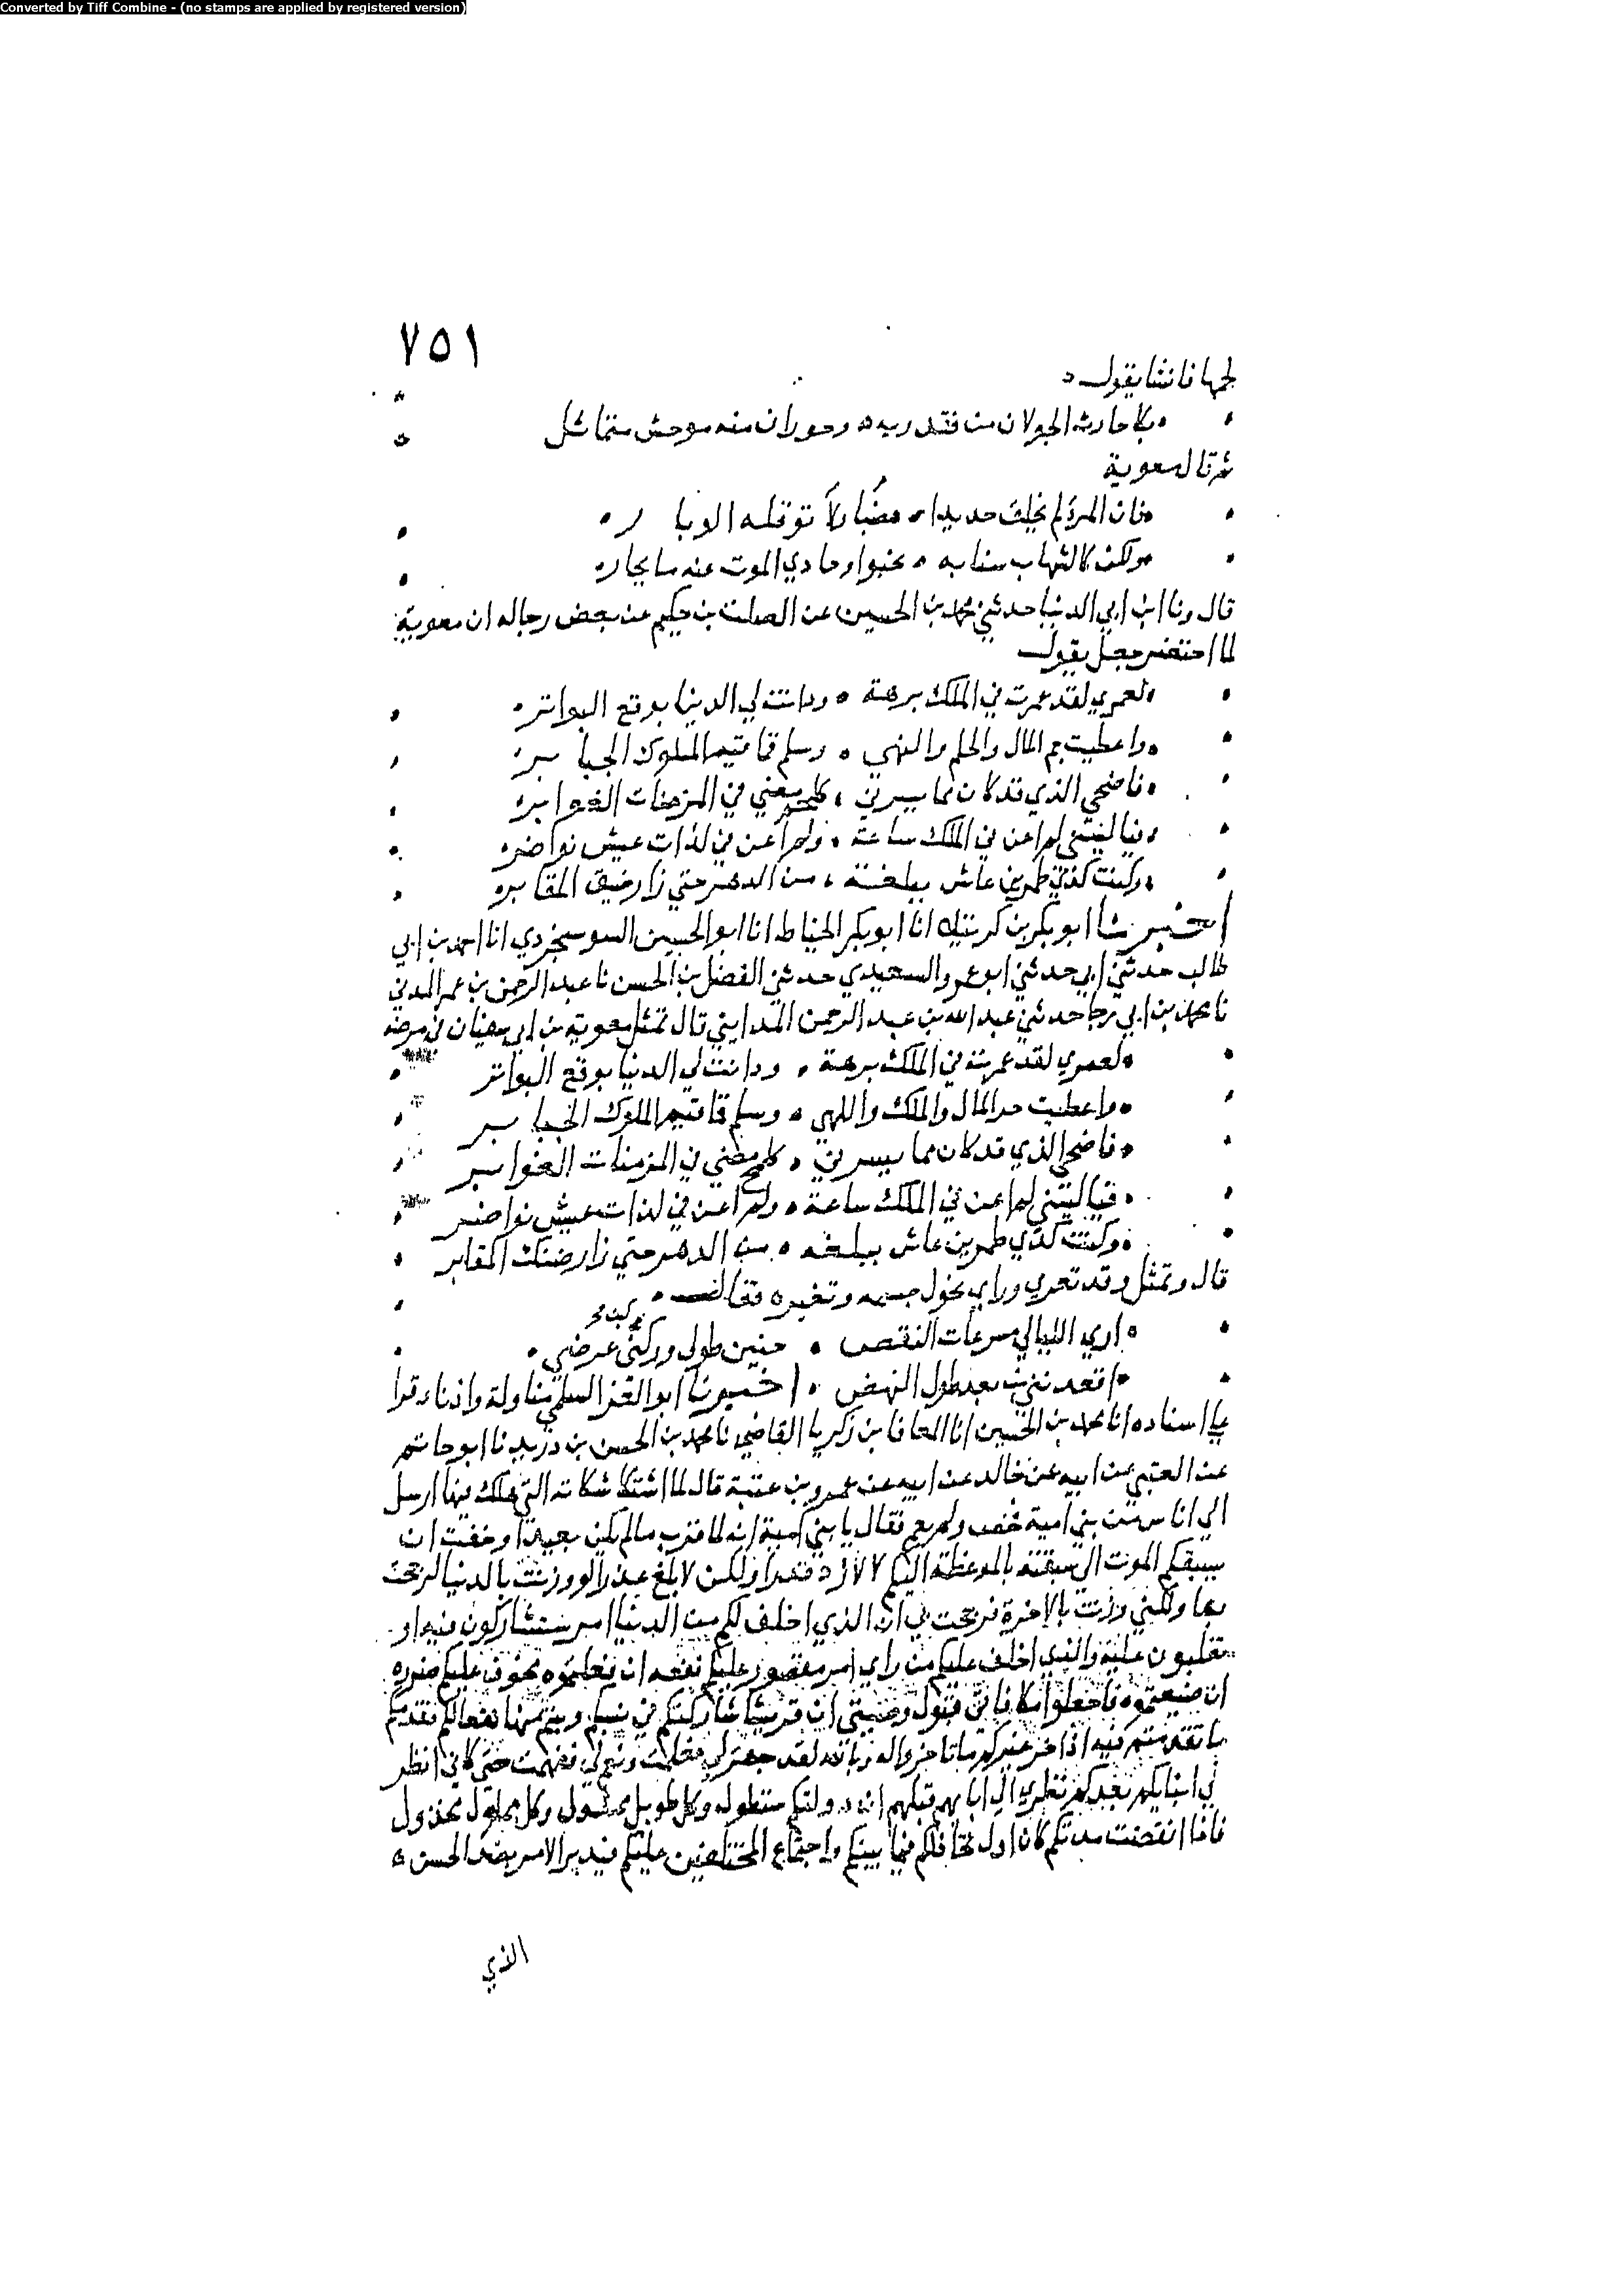 Converted by Tiff Combine - (no stamps are applied by registered version)
٧٥١
لجها فانشا يقول
بكا حارث الجولان من فقد ربه وحوران منه موحش متماثل
ثم قال معوية
فان المرء لم يخلق حديدا ولا هضبا توقله الوبار
ولكن كالشهاب سنا به يخبوا وحادي الموت عنه ما يحار
قال ونا ابن ابي الدنيا حدثني محمد بن الحسين عن الصلت بن حكيم عن بعض رجاله ان معوية
لما احتضر جعل يقول
لعمري لقد عمرت في الملك برهة ودانت لي الدنيا بوقع البواتر
واعطيت جم المال والحلم والنهى وسلم قماقيم الملوك الجبابر
فاضحى الذي قد كان مما يسرني كلمح مضى في المزمنات الغوابر
فيا ليتني لم اعن في الملك ساعة ولم اعن في لذات عيش نواضر
وكنت كذي طمرين عاش ببلغة من الدهر حتى زار ضيق المقابر
اخبرنا ابو بكر بن كرتيله انا ابو بكر الخياط انا ابو الحسين السوسنجردي انا احمد بن ابي
طالب حدثني ابي حدثني ابو عمرو السعيدي حدثني الفضل بن الحسن نا عبد الرحمن بن عمر المدني
نا محمد بن ابي رجا حدثني عبد الله بن عبد الرحمن المدايني قال تمثل معوية بن ابي سفيان في مرضه
لعمري لقد عمرت في الملك برهة ودانت لي الدنيا بوقع البواتر
واعطيت حر المال والملك واللهى وسلم قماقيم الملوك الجبابر
فاضحى الذي قد كان مما يسرني كلمح مضى في المزمنات الغوابر
فيا ليتني لم اعن في الملك ساعة ولم اعن في لذات عيش نواضر
وكنت كذي طمرين عاش ببلغه من الدهر حتى زار ضنك المقابر
قال وتمثل وقد تعرى وراى نحول جسمه وتغيره فقال
ارى الليالي مسرعات النقض حنين طولي وركن عرضي
اقعدنني من بعد طول النهض اخبرنا ابو العز السلمي مناولة واذنا وقرا
علي اسناده انا محمد بن الحسين انا المعافا بن زكريا القاضي نا محمد بن الحسن بن دريد نا ابو حاتم
عن العتبي عن ابيه عن خالد عن ابيه عن عمرو بن عتبة قال لما اشتكا شكاته التي هلك فيها ارسل
الى اناس من بني امية فخص ولم يعم فقال يا بني امية انه لما قرب ما لم يكن بعيدا وخفت ان
يسبقكم الموت الي سبقته بالموعظة اليكم لا لارد قدرا ولكن لابلغ عذرا لو وزنت بالدنيا لرجحت
بها ولكني وزنت بالاخرة فرجحت بي ان الذي اخلف لكم من الدنيا امر ستشاركون فيه او
تغلبون عليه والذي اخلف عليكم من راي امر مقصور عليكم نفعه ان فعلتموه مخوف عليكم ضرره
ان ضيعتموه فاجعلوا مكافاتي قبول وصيتي ان قريشا شاركتكم في نسبكم وبنتم منها بفعالكم فقدمكم
ما تقدمتم فيه اذ اخر غيركم ما تاخروا له وبالله لقد جهر لي فعلمت ونغم لي ففهمت حتى كاني انظر
في ابنايكم بعدكم نظري الى ابايهم قبلهم ان دولتكم ستطول وكل طويل مملول وكل مملول مخذول
فاذا انقضت مدتكم كان اول تخاذلكم فيما بينكم واجتماع المختلفين عليكم فيدبر الامر بضد الحسن
الذي